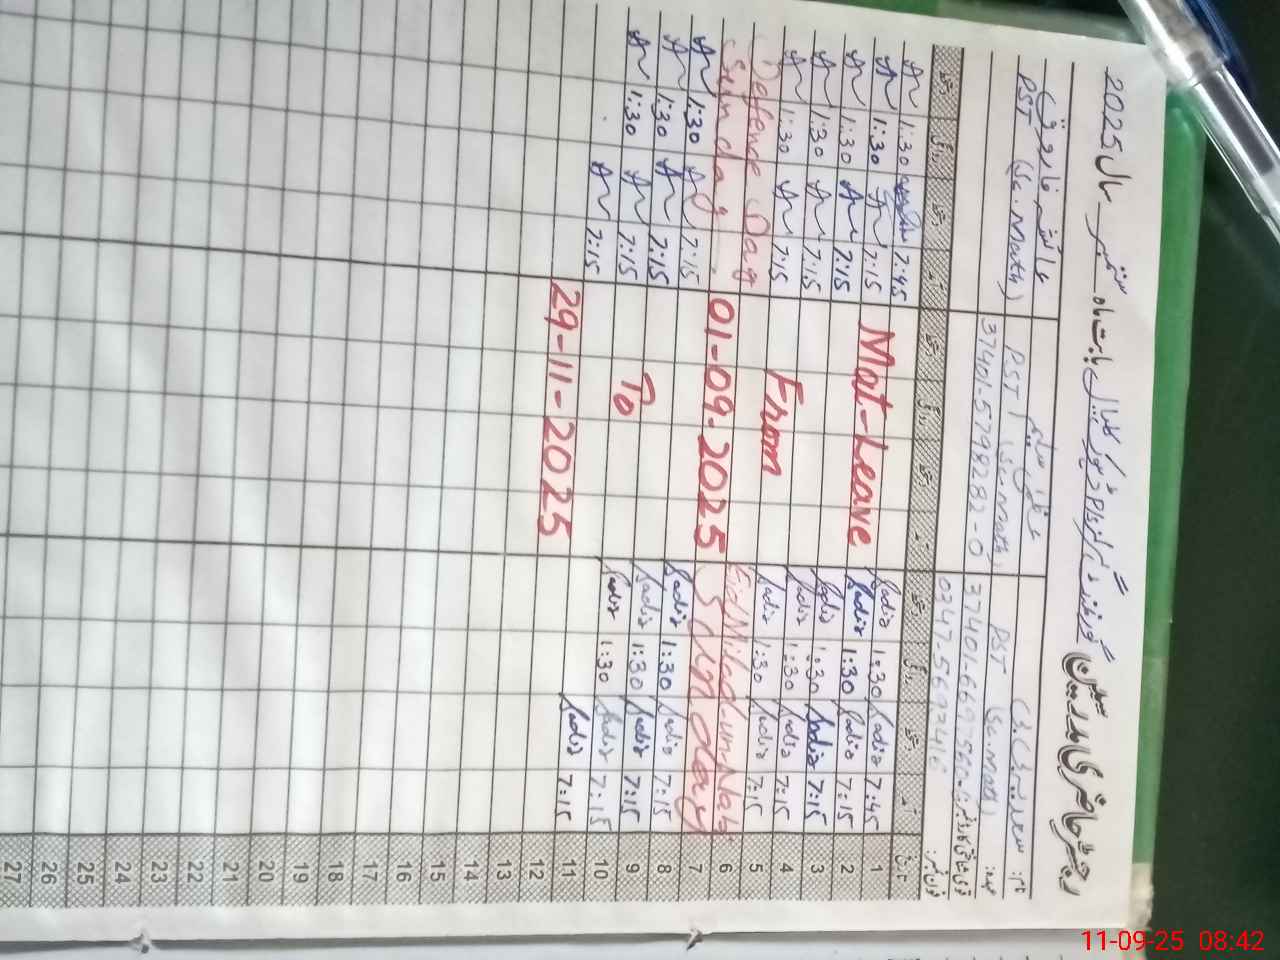 رجسٹر حاضری مدرسین
بابت ماہ ستمبر سال 2025
نام:
عہدہ:
قومی شناختی کارڈ نمبر:
فون نمبر:
سعدیہ
PST (Sc.Math)
0347-5692416
PST (Sc.Math)
37401-5798282-0
عائشہ فاروق
PST (Sc.Math)
تاریخ
1 7:45 Sadia 1:30 Sadia 7:45 1:30
2 7:15 Sadia 1:30 Sadia 7:15 1:30
3 7:15 Sadia 1:30 Sadia 7:15 1:30
4 7:15 Sadia 1:30 Sadia 7:15 1:30
5 7:15 Sadia 1:30 Sadia 7:15 1:30
6 Eid Milad-un-Nabi Defence Day
7 Sunday Sunday
8 7:15 Sadia 1:30 Sadia 7:15 1:30
9 7:15 Sadia 1:30 Sadia 7:15 1:30
10 7:15 Sadia 1:30 Sadia 7:15 1:30
11 7:15 Sadia 7:15
Mat-Leave
From
01-09-2025
To
29-11-2025
12
13
14
15
16
17
18
19
20
21
22
23
24
25
26
27
11-09-25 08:42